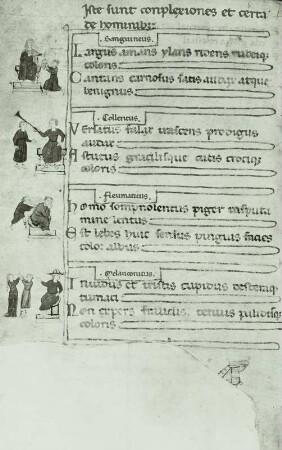 Iste sunt conplexiones et certa
de hominibz
Sanguineus
Largus amans ylaris ridens rubeiqz
coloris
Cantans carnosus satis audax atque
benignus
Collericus
Versutus falax irascens prodigus
audax
Astucus gracilisque cutis croceiqz
coloris
Fleumaticus
Homo sompnolentus piger
mine lentus
Est huic sensus pinguis facies
color albus
Melanconicus
Invidus et tristis cupidus
Non expers
coloris